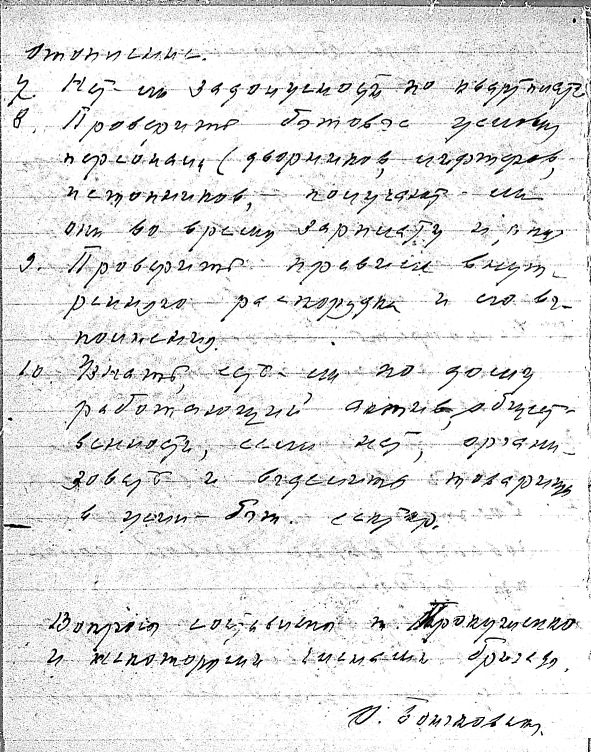 отопление.
7. Нет-ли задолжности по квартплате
8. Проверить бытовые условия
персонала (дворников, лифтеров,
истопников, - получают-ли
они во время зарплату и
9. Проверить правила внут-
реннего распорядка и его вы-
полнения.
10. Узнать, есть-ли по дому
работающий актив, общест-
венности, если нет, органи-
зовать и выделить товарища
в культ-быт. сектор.
Вопросы составлены т.
и некоторыми членами бригады.